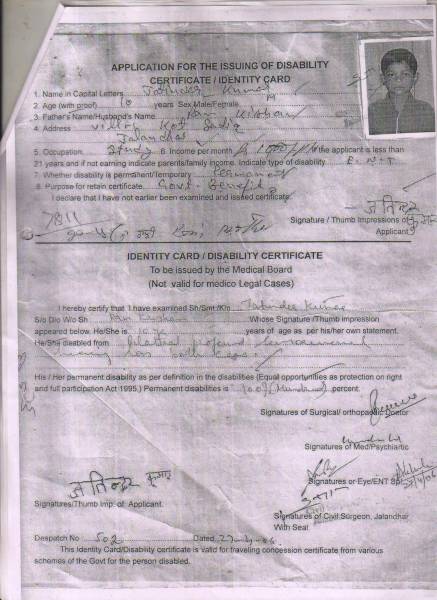 APPLICATION FOR THE ISSUING OF DISABILITY
CERTIFICATE / IDENTITY CARD
1. Name in Capital Letters Jatinder Kumar
2. Age (with proof) 10 years Sex Male/Female M
3. Father's Name/Husband's Name Ram Kishan
4. Address Vill
Jalandhar
5. Occupation Study 6. Income per month If the applicant is less than
21 years and if not earning indicate parents/family income. Indicate type of disability E.N.T
7. Whether disability is permanent/Temporary Permanent
8. Purpose for retain certificate Govt. Benefit
I declare that I have not earlier been examined and issued certificate.
Signature / Thumb Impressions of
Applicant
IDENTITY CARD / DISABILITY CERTIFICATE
To be issued by the Medical Board
(Not valid for medico Legal Cases)
I hereby certify that I have examined Sh/Smt/Km Jatinder Kumar
S/o D/o W/o Sh Ram Kishan Whose Signature /Thumb impression
appeared below. He/She is 10 years of age as per his/her own statement.
He/She disabled from bilateral profound sensorineural
hearing loss both ears.
His / Her permanent disability as per definition in the disabilities (Equal opportunities as protection on right
and full participation Act 1995.) Permanent disabilities is 100% (Hundred) percent.
Signatures of Surgical/ orthopaedic Doctor
Signatures of Med/Psychiartic
Signatures or Eye/ENT Spl.
जतिन्द्र कुमार
Signatures/Thumb Imp. of Applicant.
Signatures of Civil Surgeon, Jalandhar
With Seal
Despatch No 502 Dated
This Identity Card/Disability certificate is valid for traveling concession certificate from various
schemes of the Govt for the person disabled.